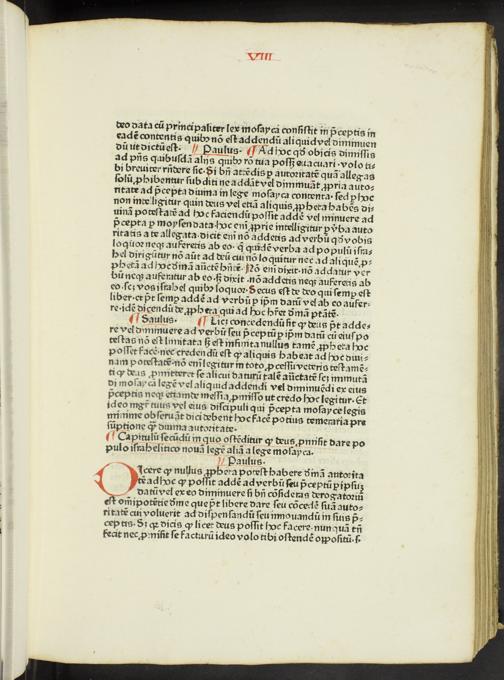 VIII
deo data cū principaliter lex mosayca consistit in p̄ceptis in
eadē contentis quibꝰ nō est addendū aliquid vel diminuen
dū ut dictū est. Paulus. ¶ Ad hoc qd̓ obicis dimissis
ad pn̄s quibusdā alijs quibꝰ rō tua poss̄ euacuari. volo ti-
bi breuiter rn̄dere sic. Si bn̄ attēdis ꝑ autoritatē quā allegas
solū ꝓhibentur subditi ne addāt vel diminuāt ꝓpria auto-
ritate ad p̄cepta diuina in lege mosayca contenta. sed ꝑ hoc
non intelligitur quin deus vel etiā aliquis ꝓphera habēs di-
uinā potestatē ad hoc faciendū possit addē vel minuere ad
p̄cepta ꝑ moysen data. hoc eni ꝓprie intelligitur ꝑ v̓ba auto
ritatis a te allegata. dicit eni nō addetis ad verbū qd̓ vobis
loquor neqꝫ auferetis ab eo. q̄ quidē verba ad populū isra-
hel dirigūtur nō aūt ad deū cui nō loquitur nec ad aliquē ꝓ-
phetā ad hoc diuinā auctē hn̄tē. Nō eni dixit. nō addatur ver
bū neqꝫ auferatur ab eo. sꝫ dixit. nō addetis neqꝫ auferetis ab
eo. sc; vos israhel quibꝰ loquor. Secus est de deo qui semp est
liber. et pt̄ semp addē ad verbū ꝑ ipm̄ datū vel ab eo aufer-
re. idē dicendū de ꝓphera qui ad hoc hr̄et diuinā ptātē.
¶ Saulus. ¶ Lici concedendū sit qꝫ deus pt̄ adde-
re vel diminuere ad verbū seu p̄ceptū ꝑ ipm̄ datū cū eius po
testas nō est limitata sꝫ est infinita nullus tamē ꝓphera hoc
posset facē. nec credendū est qꝫ aliquis habeat ad hoc diui-
nam potestatē. nō eni legitur in toto ꝓcessu veteris testamē-
ti qꝫ deus ꝓmitteret se alicui daturū talē auctatē sc; immutā
di mosaycā legē vel aliquid addendi vel diminuēdi ex eius
p̄ceptis neqꝫ etiam de messia ꝓmisso ut credo hoc legitur. Et
ideo mgr̄ tuus vel eius discipuli qui p̄cepta mosayce legis
minime obseruāt dici debent hoc facē potius temeraria pre
sūptione q̄ diuina autoritate.
¶ Capitulū secūdū in quo ostēditur qꝫ deus ꝓmisit dare po
pulo israhelitico nouā legē aliā a lege mosayca.
Paulus.
Dicere qꝫ nullus ꝓphera potest habere diuinā autorita
tē ad hoc qꝫ possit addē ad verbū seu p̄ceptū ꝑ ipsum
datū vel ex eo diminuere si bn̄ cōsideras derogatoriū
est omīpotētie diuine que pt̄ libere dare seu cōcedē suā auto-
ritatē cui voluerit ad dispensandū seu innouandū in suis p̄-
ceptis. Si qꝫ dicis qꝫ licet deus possit hoc facere. nunquā tn̄
fecit nec ꝓmisit se facturū ideo volo tibi ostendē oppositū. s.